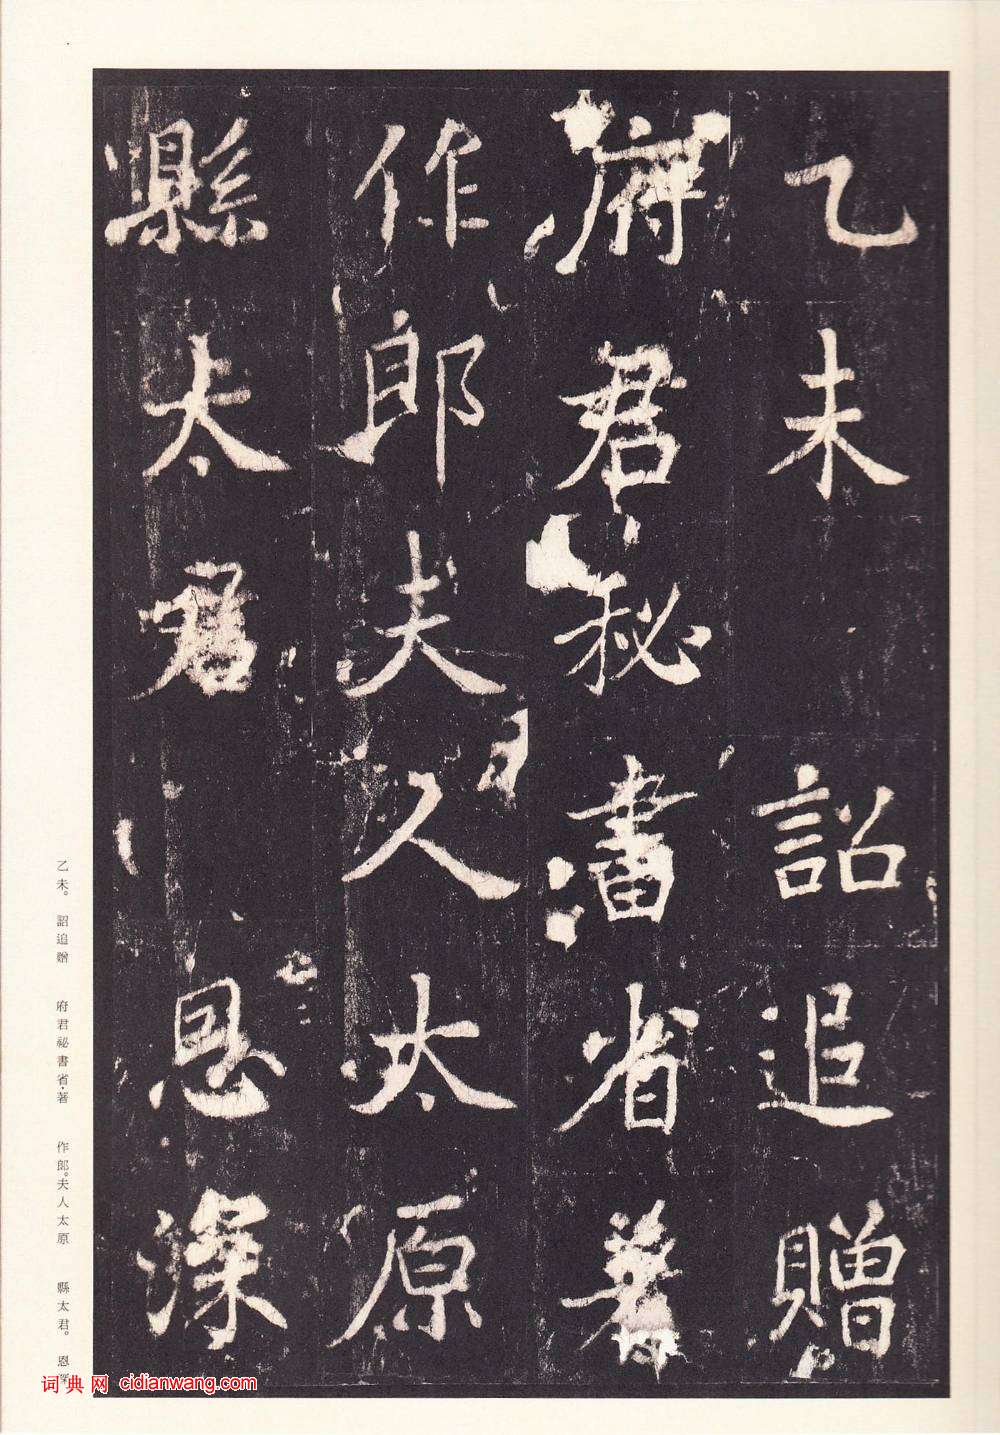 乙未詔追贈
府君秘書省著
作郎夫人太原
縣太君恩深
乙未。詔追贈 府君祕書省·著 作郎。夫人太原 縣太君。恩深
词典网 cidianwang.com